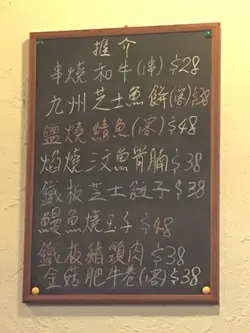 推介
串燒和牛(串)$28
九州芝士魚餅(客)$38
鹽燒鯖魚(客)$48
焰燒三文魚腩$38
鐵板芝士餃子$38
鰻魚燒玉子$48
鐵板豬頸肉$38
金菇肥牛卷(客)$38